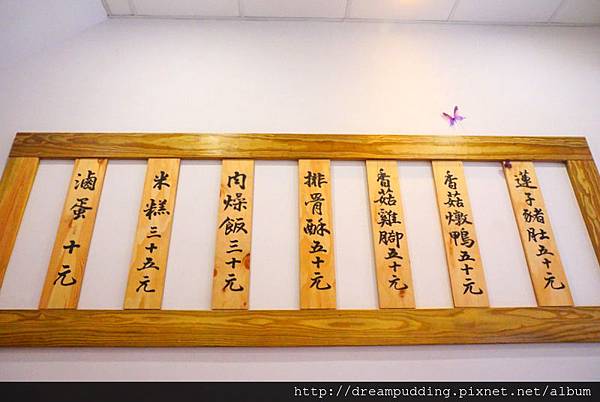 蓮子豬肚五十元
香菇燉鴨五十元
香菇雞腳五十元
排骨酥五十元
肉燥飯三十元
米糕三十五元
滷蛋十元
http://dreampudding.pixnet.net/album